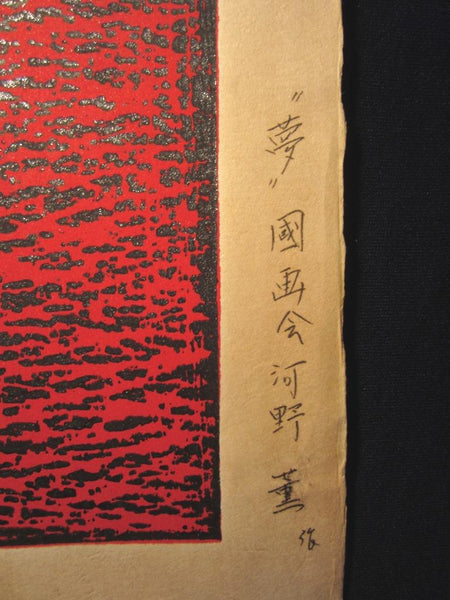 "夢" 國画会河野 薫 作